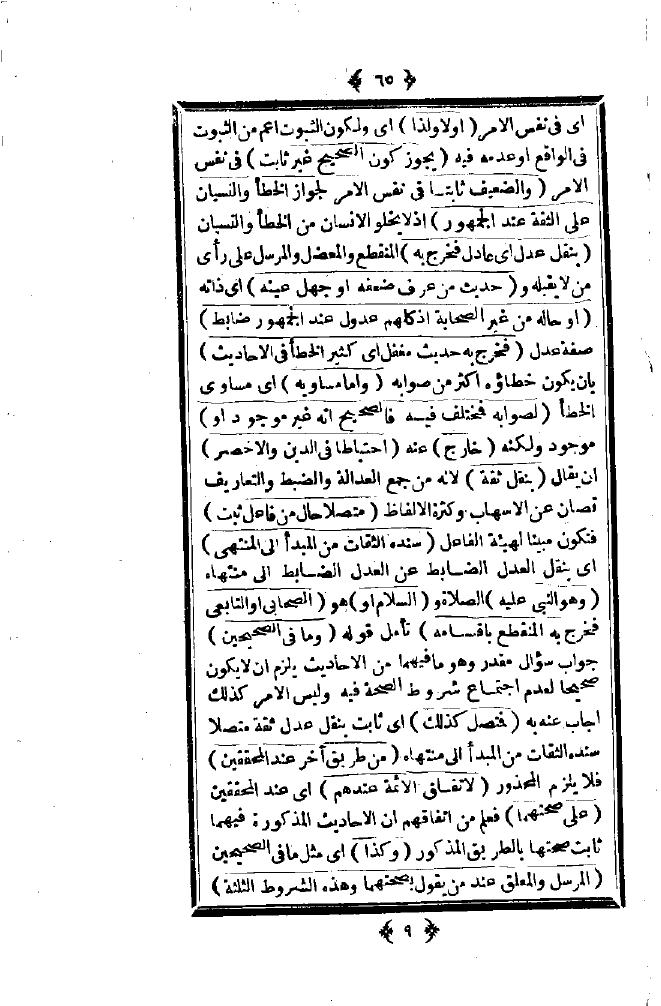 ﴿ ٦٥ ﴾
اى فى نفس الامر ( اولا ولذا ) اى ولكون الثبوت اعم من الثبوت
فى الواقع او عدمه فيه ( يجوز كون الصحيح غير ثابت ) فى نفس
الامر ( والضعيف ثابتا فى نفس الامر لجواز الخطأ والنسيان
على الثقة عند الجمهور ) اذ لا يخلو الانسان من الخطأ والنسيان
( بنقل عدل اى عادل فخرج به ) المنقطع والمعضل والمرسل على رأى
من لا يقبله و ( حديث من عرف ضعفه او جهل عينه ) اى ذاته
( او حاله من غير الصحابة اذ كلهم عدول عند الجمهور ضابط )
صفة عدل ( فخرج به حديث مغفل اى كثير الخطأ فى الاحاديث )
بان يكون خطاؤه اكثر من صوابه ( واما مساويه ) اى مساوى
الخطأ ( لصوابه فمختلف فيه فالصحيح انه غير موجود او )
موجود ولكنه ( خارج ) عنه ( احتياطا فى الدين والاخصر )
ان يقال ( بنقل ثقة ) لانه من جمع العدالة والضبط والتعاريف
تصان عن الاسهاب وكثرة الالفاظ ( متصلا حال من فاعل ثبت )
فتكون مبينا لهيئة الفاعل ( سنده الثقات من المبدأ الى المنتهى )
اى بنقل العدل الضابط عن العدل الضابط الى منتهاه
( وهو النبى عليه ) الصلاة و ( السلام او ) هو ( الصحابى او التابعى
فخرج به المنقطع باقسامه ) تأمل قوله ( وما فى الصحيحين )
جواب سؤال مقدر وهو ما فيهما من الاحاديث يلزم ان لا يكون
صحيحا لعدم اجتماع شروط الصحة فيه وليس الامر كذلك
اجاب عنه به ( فتصل كذلك ) اى ثابت بنقل عدل ثقة متصلا
سنده الثقات من المبدأ الى منتهاه ( من طريق آخر عند المحققين )
فلا يلزم المحذور ( لاتفاق الائمة عندهم ) اى عند المحققين
( على صحتهما ) فعلم من اتفاقهم ان الاحاديث المذكورة فيهما
ثابت صحتها بالطريق المذكور ( وكذا ) اى مثل ما فى الصحيحين
( المرسل والمعلق عند من يقول بصحتهما وهذه الشروط الثلثة )
﴿ ٩ ﴾